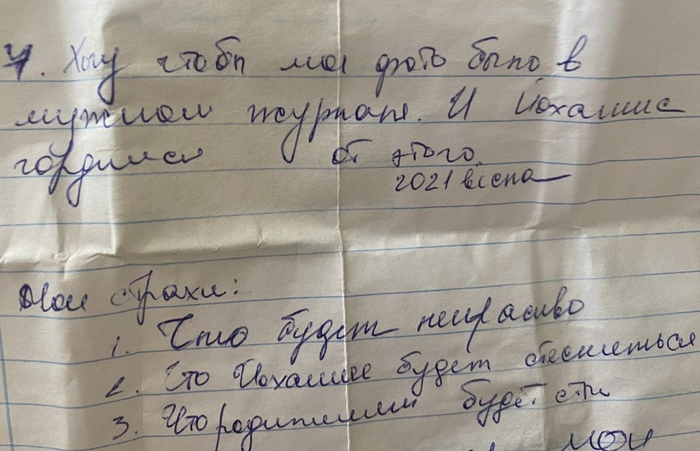 4. Хочу чтобы мои фото было в
журнале. И Йоханнис
гордился от этого.
2021 весна
Мои страхи:
1. Что будет некрасиво
2. Что Йоханнес будет стесняться
3. Что родителям будет сты
мои